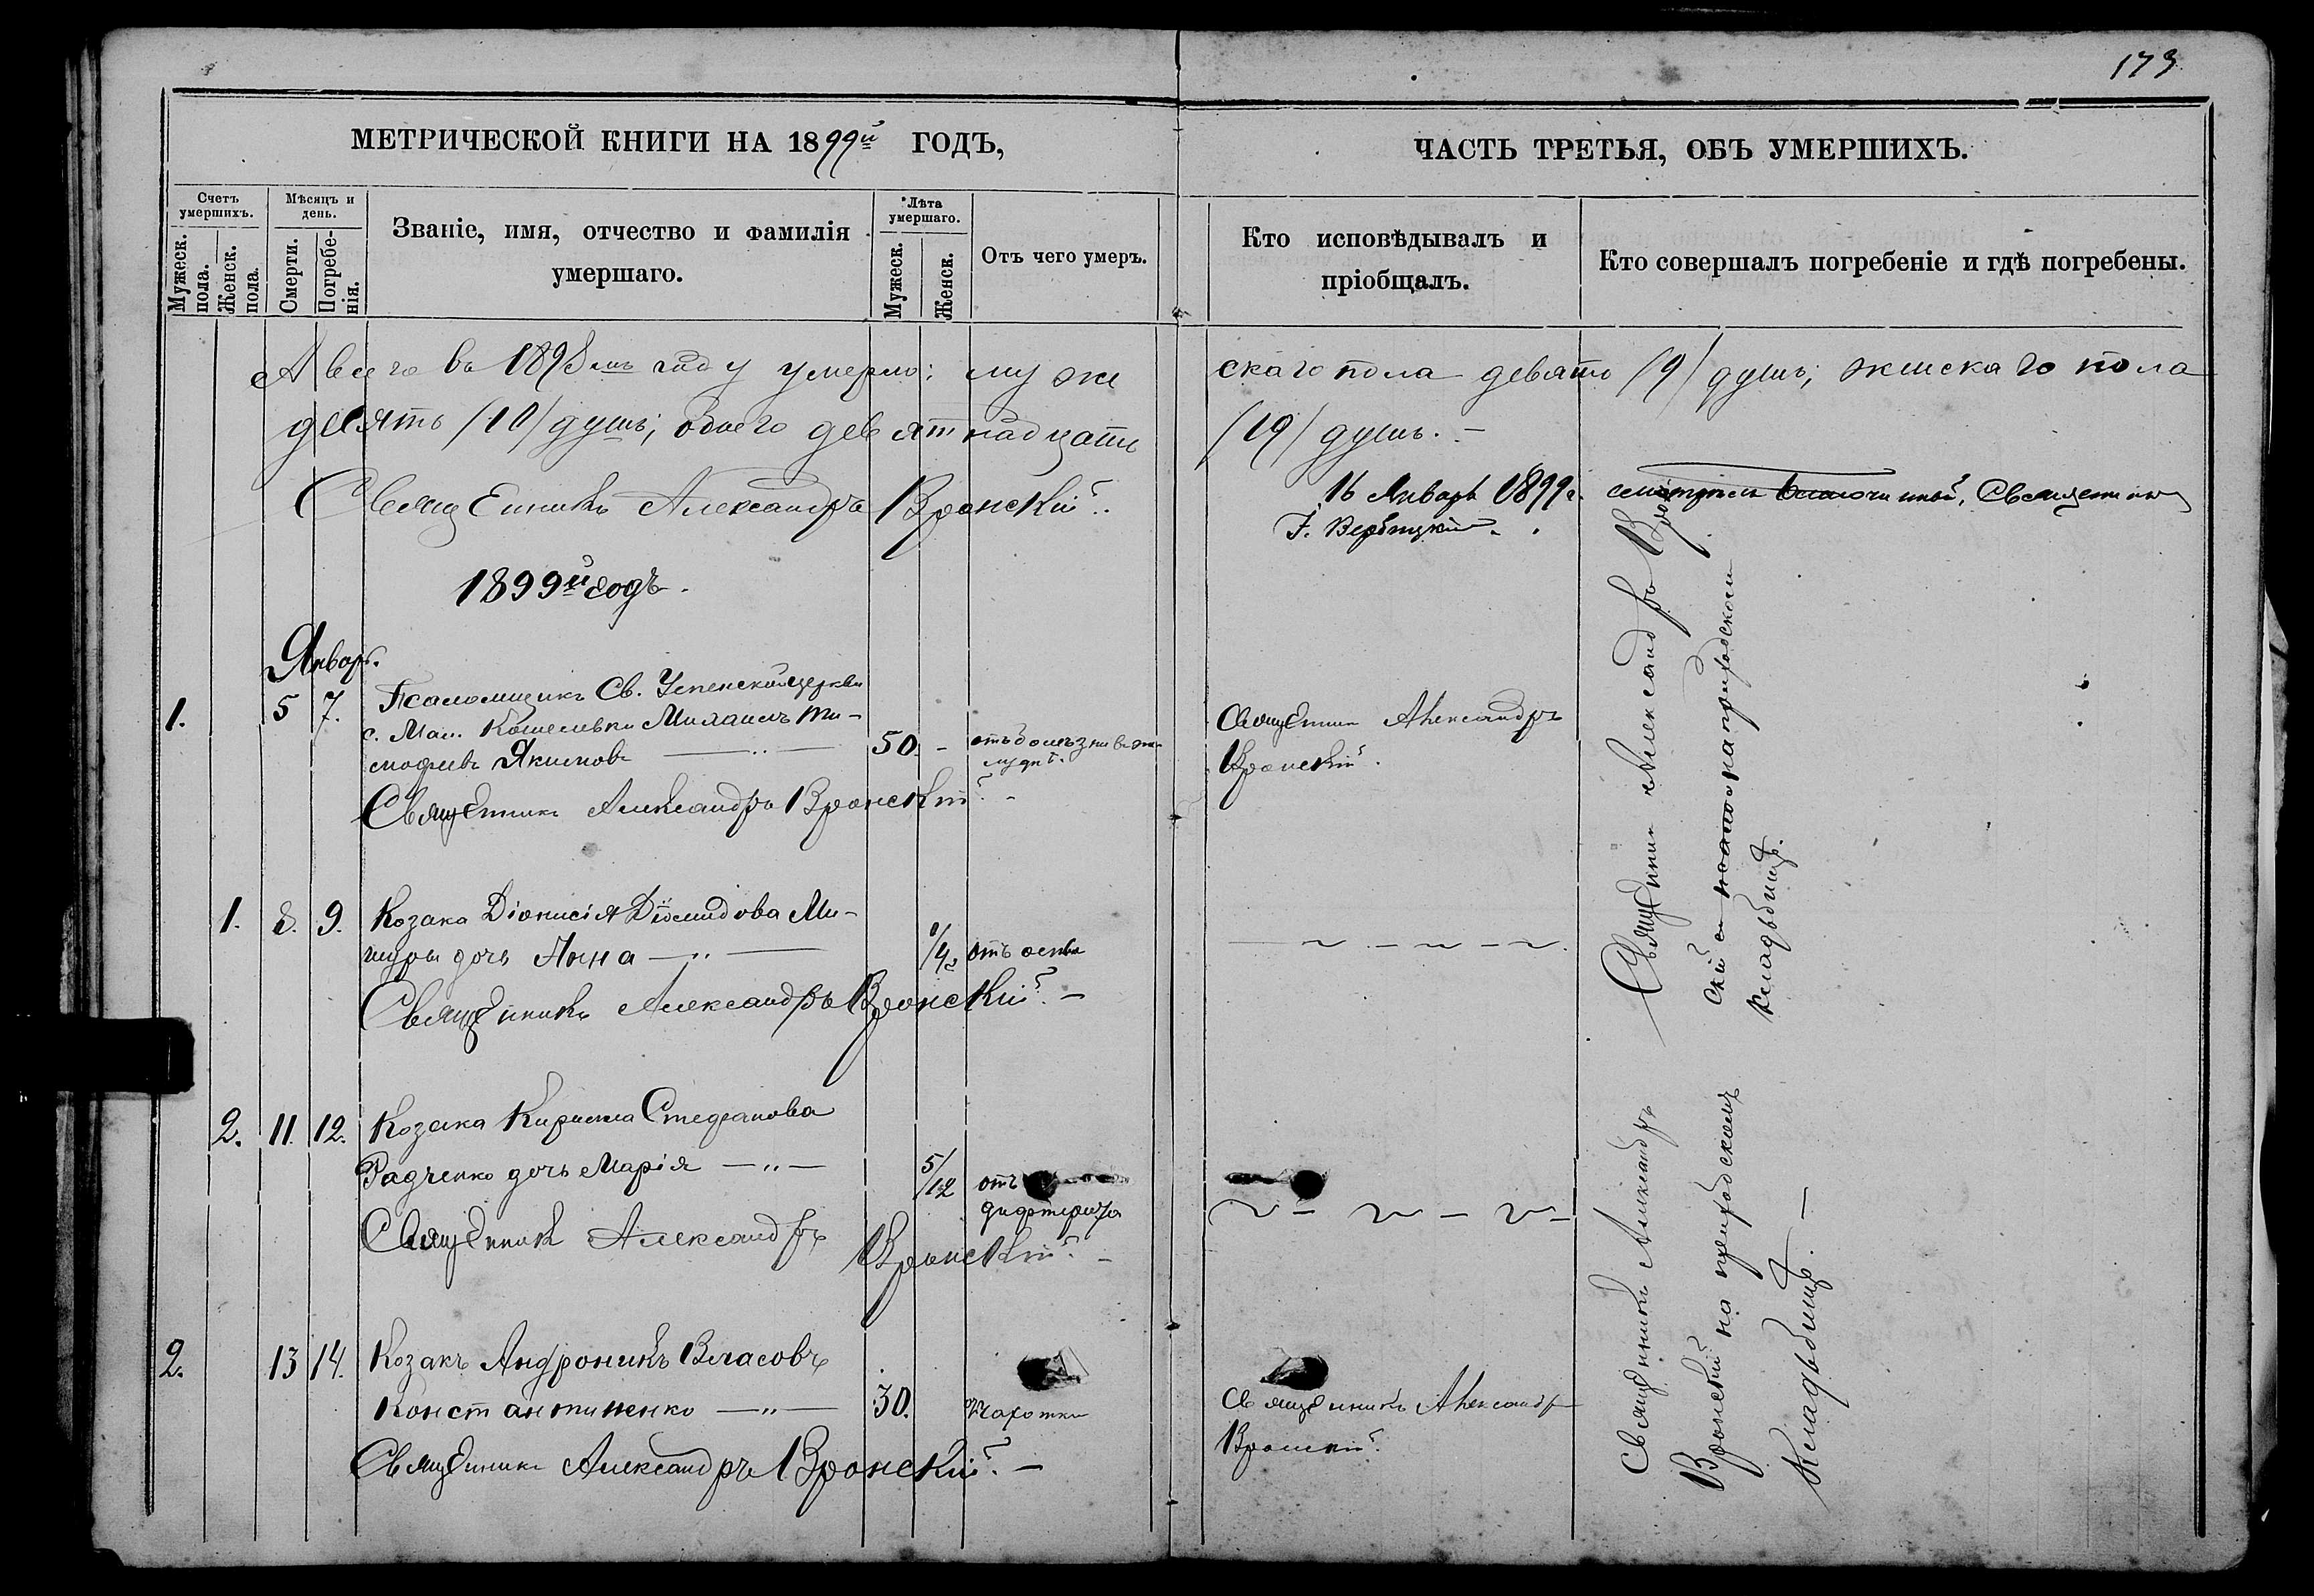 173
МЕТРИЧЕСКОЙ КНИГИ НА 1899й ГОДЪ,
ЧАСТЬ ТРЕТЬЯ, ОБЪ УМЕРШИХЪ.
Счетъ умершихъ.
Мужеск. пола.
Женск. пола.
Мѣсяцъ и день.
Смерти.
Погребе-
нія.
Званіе, имя, отчество и фамилія
умершаго.
Лѣта умершаго.
Мужеск.
Женск.
Отъ чего умеръ.
Кто исповѣдывалъ и
пріобщалъ.
Кто совершалъ погребеніе и гдѣ погребены.
А всего въ 1898мъ году умерло: муже
скаго пола девять /9/ душъ; женскаго пола
десять /10/ душъ; обоего девятнадцать
/19/ душъ. —
Священникъ Александръ Вронскій.
16 Января 1899 г. Священникъ
І. Вербицкій.
1899й годъ.
Январь.
1. 5 7. Псаломщикъ Св. Успенской церкви
с. Мал. Кошелевки Михаилъ Ти-
мофеевъ Якимовъ — 50. - отъ болѣзни въ же-
лудкѣ.
Священникъ Александръ
Вронскій.
Священникъ Александръ Вронскій. —
1. 8. 9. Козака Діонисія Діомидова Ми-
шуры дочь Анна — 1/4 отъ оспы
Священникъ Александръ Вронскій. —
Священникъ Александръ Врон
скій на приходскомъ
кладбищѣ.
2. 11. 12. Козака Кирилла Стефанова
Радченко дочь Марія — 5/12 отъ
дифтерита
Священникъ Александръ Вронскій. —
2. 13 14. Козакъ Андроникъ Власовъ
Константиненко — 30. Чахотки
Священникъ Александръ
Вронскій.
Священникъ Александръ Вронскій. —
Священникъ Александръ
Вронскій на приходскомъ
кладбищѣ. —